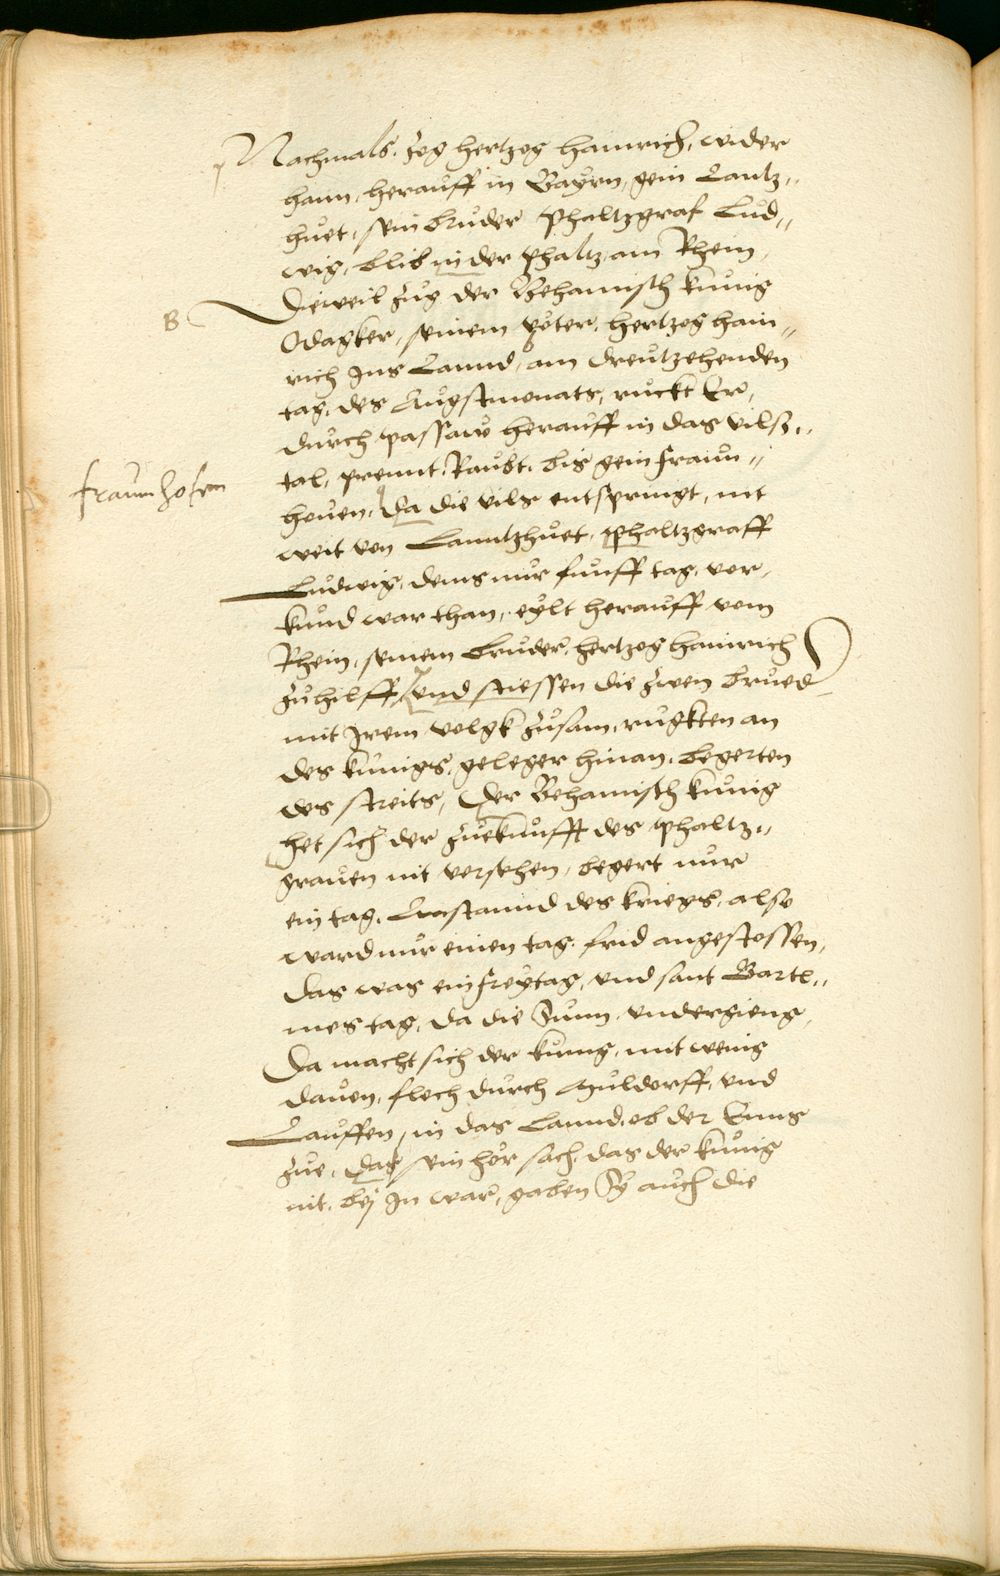 Nachmals, zog hertzog hainrich, wider
haim, herauff in Bayrn, gein Lantz„
huet, sein bruder Phaltzgraf Lud„
wig, blib in der Phaltz am Rhein,
B
Dieweil zug der Behamisch kunig
Odagker, seinem veter, hertzog hain„
rich Ins Lannd, am dreutzehenden
tag, des Augstmonats, ruckt Er,
durch passaw herauff in das vilß„
tal, prennt, Raubt, bis gein fraun„
fraunhofen
hoven, da die vils entspringt, nit
weit von Lanntzhuet, Phaltzgraff
Ludwig, dems nur funff tag, ver,
kund war than, eylt herauff vom
Rhein, seinem bruder, hertzog hainrich
zuhilff, und stiessen die zwen brued
mit Irem volgk zusam, rugkten an
des kunigs, geleger hinan, begerten
des streits, Der Behamisch kunig
het sich der zuekunfft des phaltz„
graven nit versehen, begert nur
ein tag, Anstannd des kriegs, also
ward nur einen tag, frid angestossen,
das was ein freytag, und sant Bartl„
mes tag, da die Sunn, undergieng,
Da macht sich der kunig, mit wenig
davon, floch durch Muldorff, und
Lauffen, in das Lannd, ob der Enns
zue, Das sein hör sach, das der kunig
nit, bej In war, gaben Sy auch die